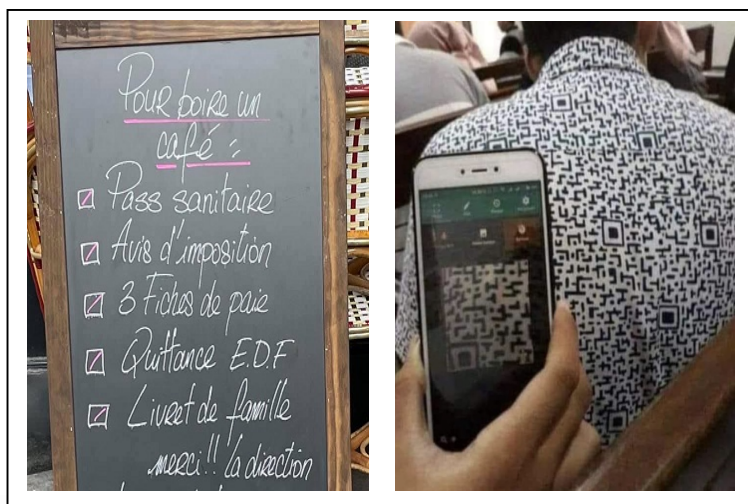 Pour boire un
café :
Pass sanitaire
Avis d'imposition
3 Fiches de paie
Quittance E.D.F
Livret de famille
merci!! La direction